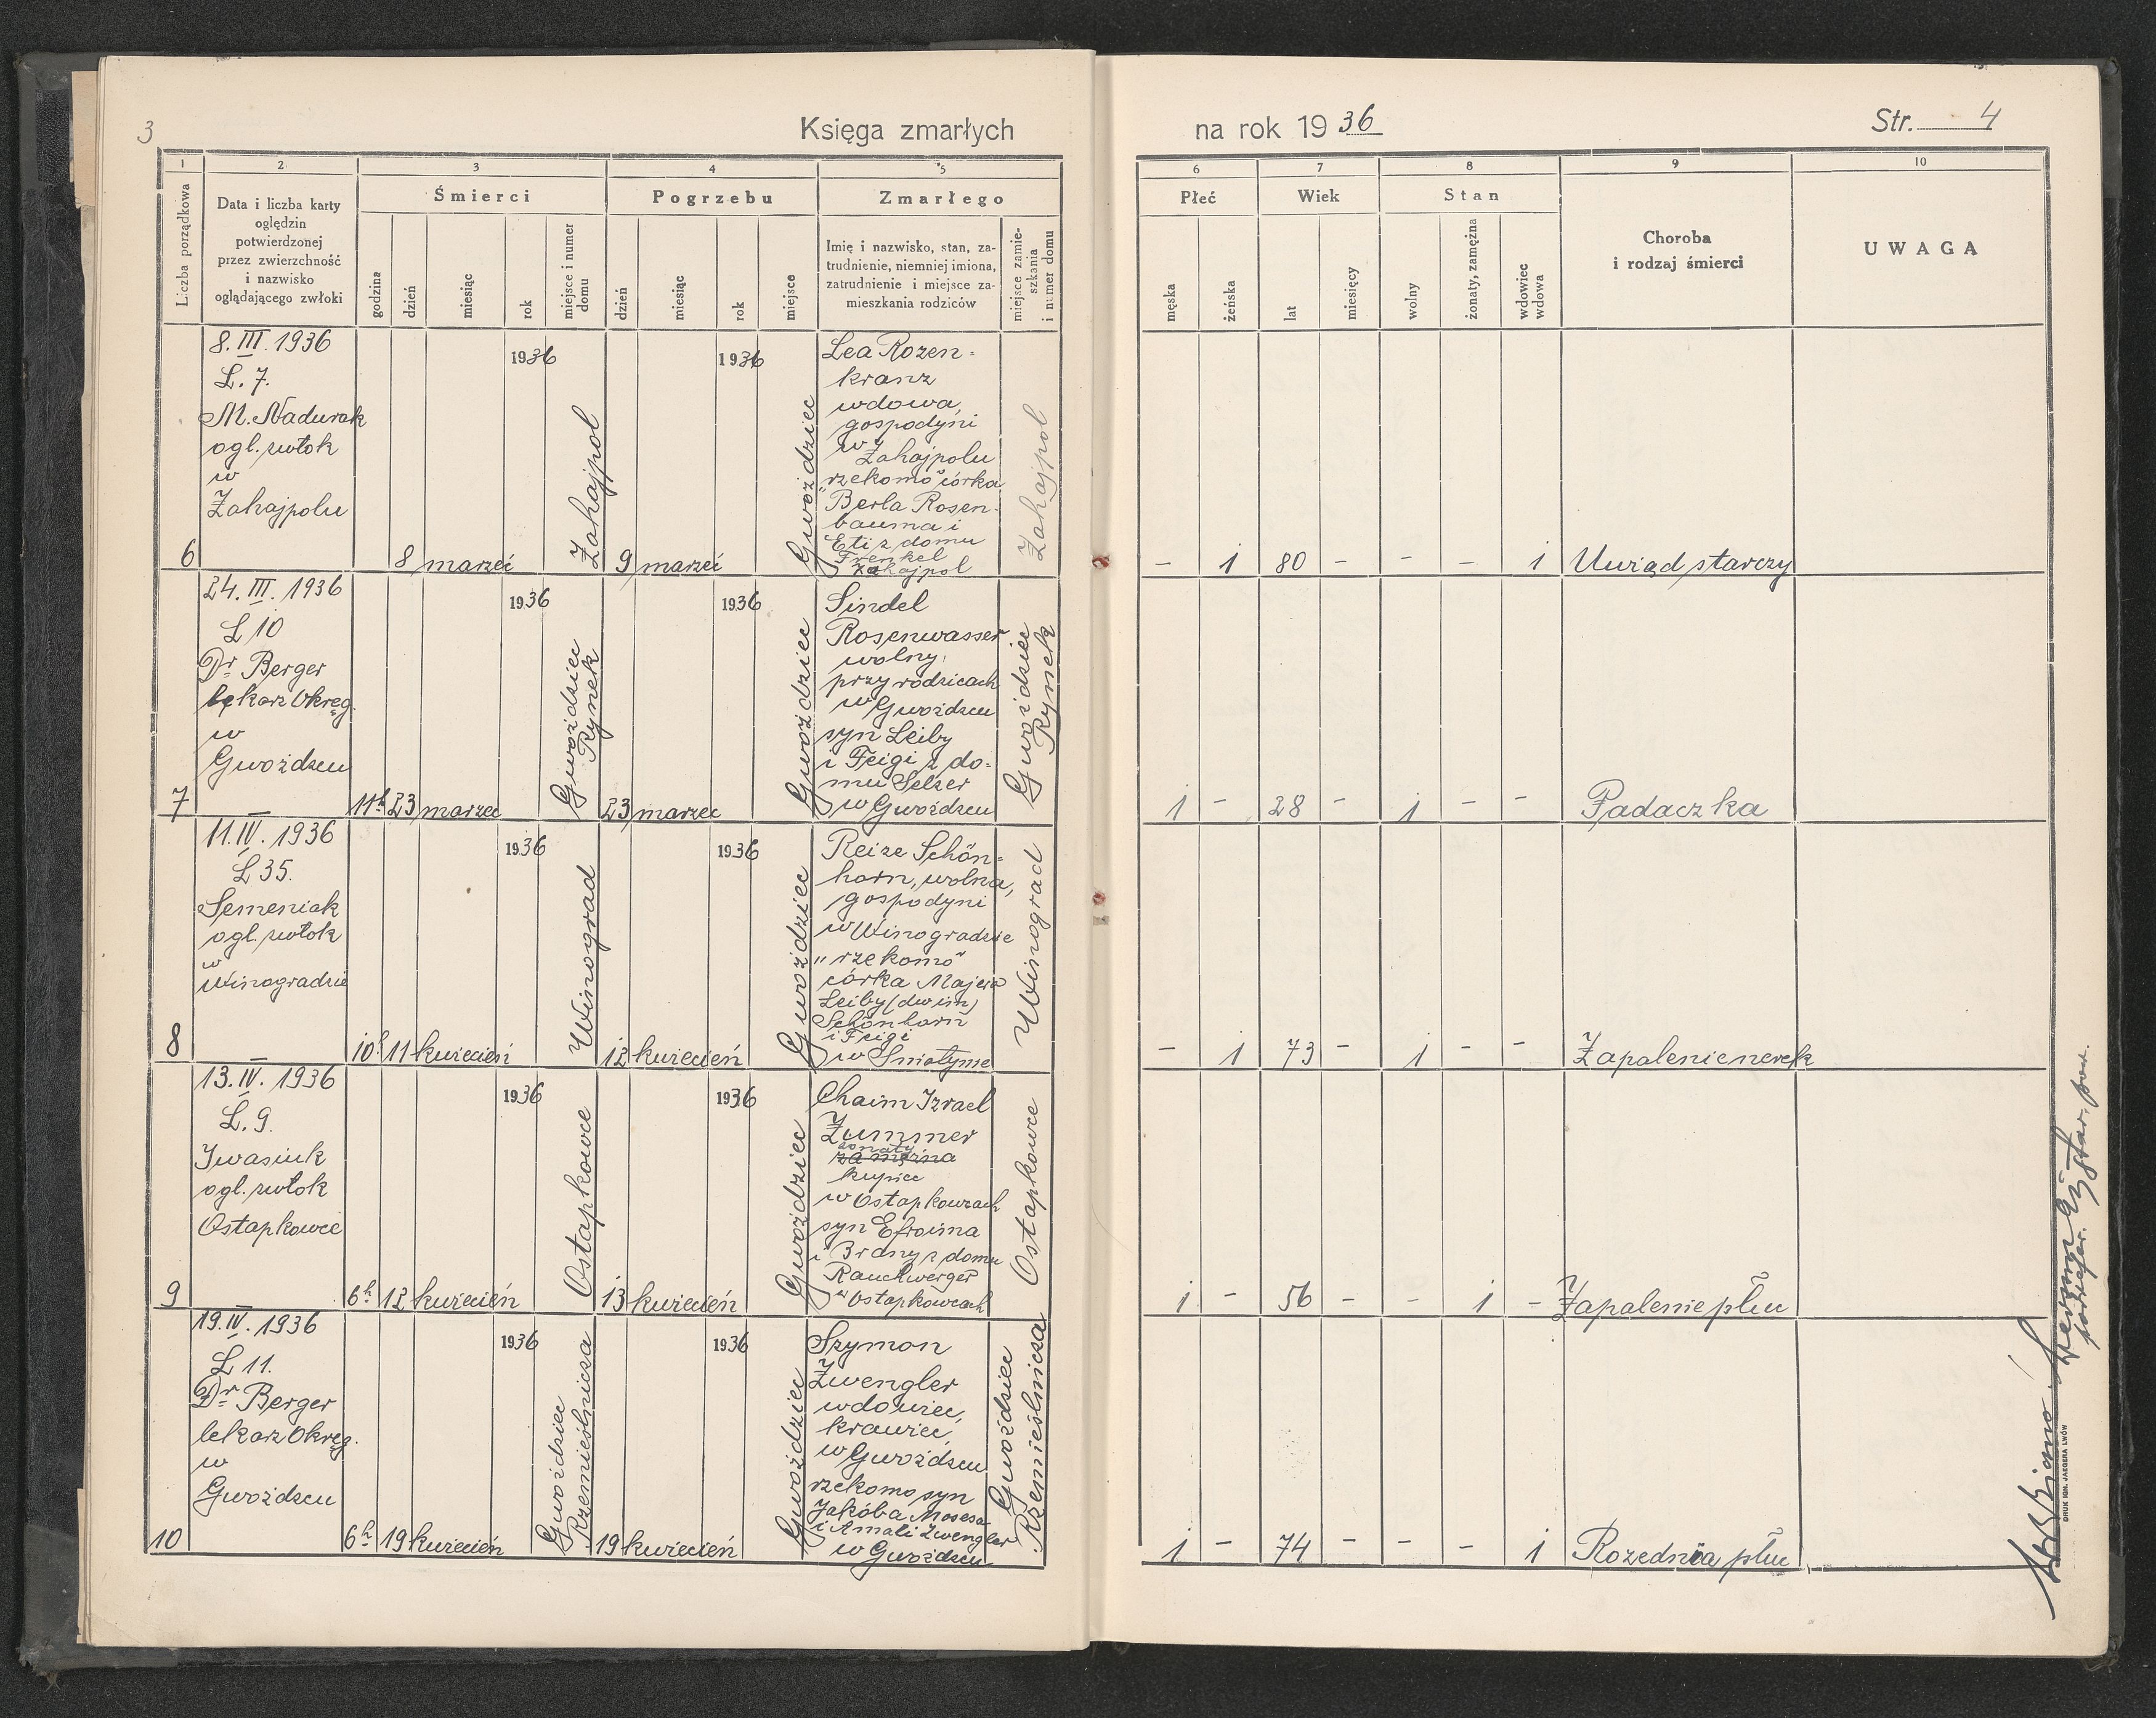 3
Księga zmarłych
na rok 1936
Str. 4
1
2
3
4
5
6
7
8
9
10
Liczba porządkowa
Data i liczba karty
oględzin
potwierdzonej
przez zwierzchność
i nazwisko
oglądającego zwłoki
Śmierci
godzina
dzień
miesiąc
rok
miejsce i numer
domu
Pogrzebu
dzień
miesiąc
rok
miejsce
Zmarłego
Imię i nazwisko, stan, za-
trudnienie, niemniej imiona,
zatrudnienie i miejsce za-
mieszkania rodziców
miejsce zamie-
szkania
i numer domu
Płeć
męska
żeńska
Wiek
lat
miesięcy
Stan
wolny
żonaty, zamężna
wdowiec
wdowa
Choroba
i rodzaj śmierci
UWAGA
6
8. III. 1936
L. 7.
M. Nadurak
ogl. zwłok
w
Zahajpolu
8 marzec
1936
Zahajpol
9 marzec
1936
Gwoździec
Lea Rozen-
kranz
wdowa,
gospodyni
w Zahajpolu
"rzekomo" córka
Berla Rosen-
bauma i
Eti z domu
Frenkel
Zahajpol
Zahajpol
- 1 80 - - - 1 Uwiąd starczy
7
24. III. 1936
L 10
Dr Berger
lekarz Okręg.
w
Gwoźdzcu
11h 23 marzec
1936
Gwoździec
Rynek
23 marzec
1936
Gwoździec
Sindel
Rosenwasser
wolny,
przy rodzicach
w Gwoźdzcu
syn Leiby
i Feigi z do-
mu Selzer
w Gwoźdzcu
Gwoździec
Rynek
1 - 28 - 1 - - Padaczka
8
11. IV. 1936
L 35.
Semeniak
ogl. zwłok
w
Winogradzie
10h 11 kwiecień
1936
Winograd
12 kwiecień
1936
Gwoździec
Reize Schön-
horn, wolna,
gospodyni
w Winogradzie
"rzekomo"
córka Majera
Leiby (dwim)
Schönhorn
i Feigi
w Śniatynie
Winograd
- 1 73 - 1 - - Zapalenie nerek
9
13. IV. 1936
L. 9.
Iwasiuk
ogl. zwłok
Ostapkowce
6h 12 kwiecień
1936
Ostapkowce
13 kwiecień
1936
Gwoździec
Chaim Izrael
Zummer
żonaty
zamężna
kupiec
w Ostapkowcach
syn Efroima
i Brany z domu
Rauchwerger
w Ostapkowcach
Ostapkowce
1 - 56 - - 1 - Zapalenie płuc
10
19. IV. 1936
L 11.
Dr Berger
lekarz Okręg.
w
Gwoźdzcu
6h 19 kwiecień
1936
Gwoździec
Rzemieślnicza
19 kwiecień
1936
Gwoździec
Szymon
Zwengler
wdowiec,
krawiec,
w Gwoźdzcu
rzekomo syn
Jakóba Mosesa
i Amali Zwengler
w Gwoźdzcu
Gwoździec
Rzemieślnicza
1 - 74 - - - 1 Rozednia płuc
DRUK IGN. JAEGERA LWÓW